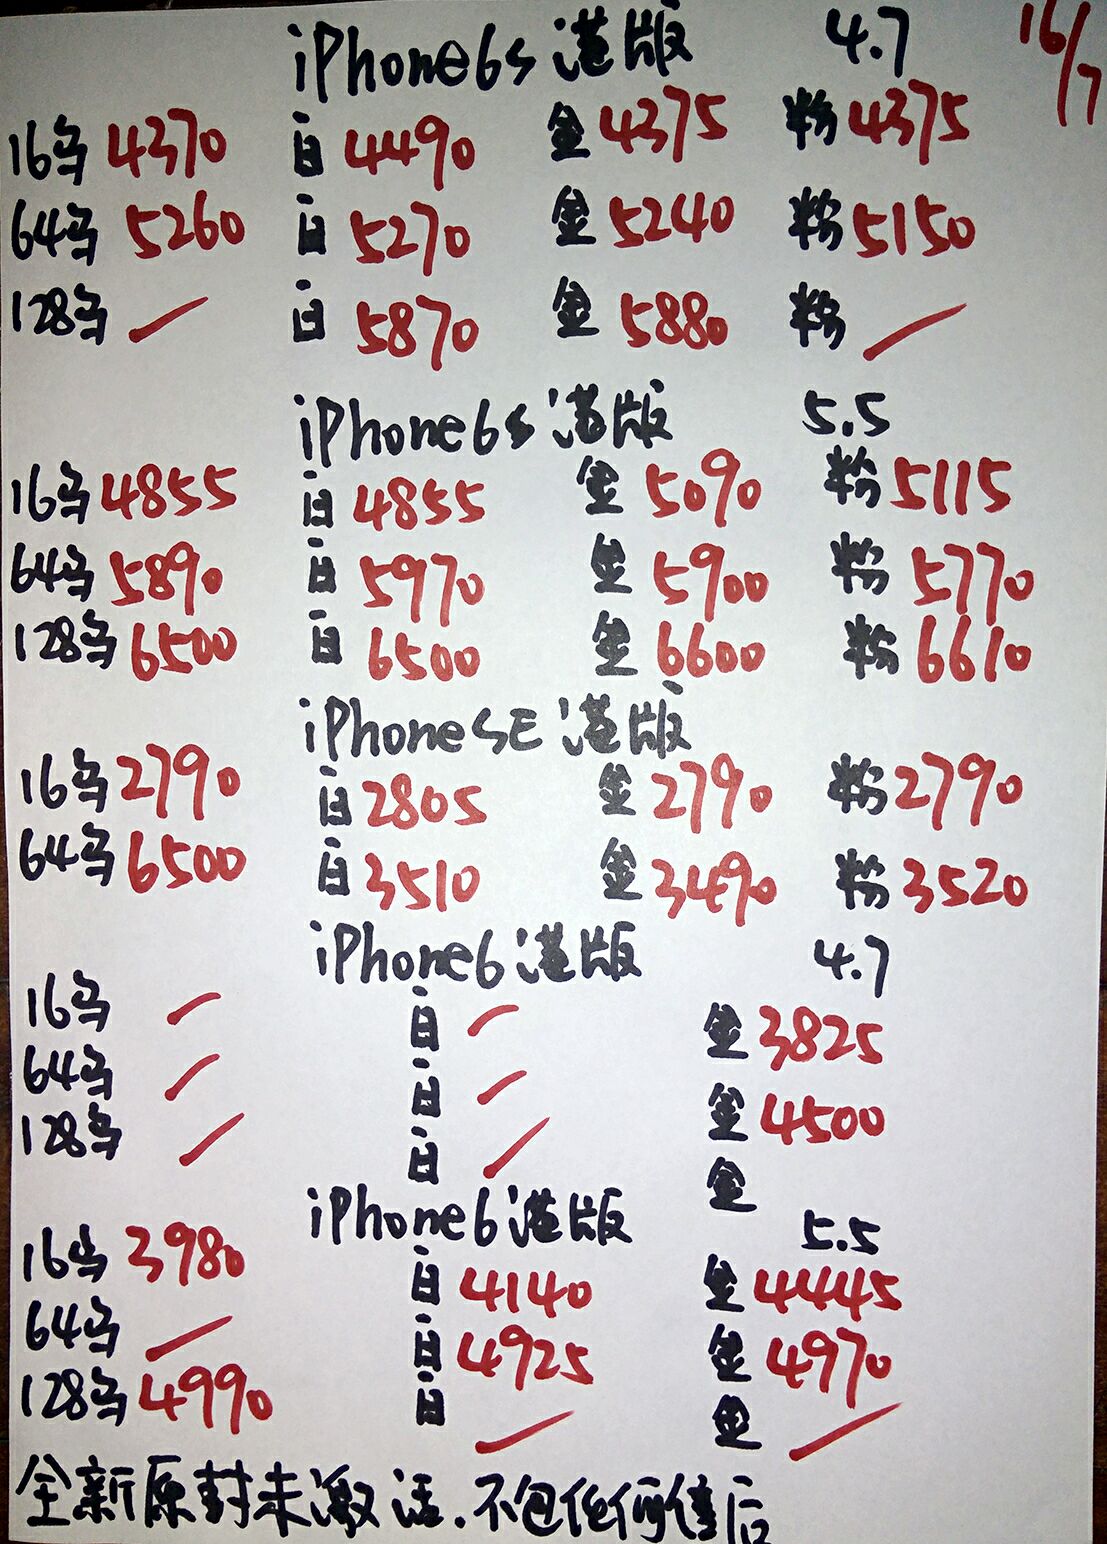 iPhone6s港版 4.7 16/7
16乌4370 白4490 金4375 粉4375
64乌5260 白5270 金5240 粉5150
128乌/ 白5870 金5880 粉/
iPhone6s港版 5.5
16乌4855 白4855 金5090 粉5115
64乌5890 白5970 金5900 粉5770
128乌6500 白6500 金6600 粉6610
iPhoneSE港版
16乌2790 白2805 金2790 粉2790
64乌6500 白3510 金3490 粉3520
iPhone6港版 4.7
16乌/ 白/ 金3825
64乌/ 白/ 金4500
128乌/ 白/ 金
iPhone6港版 5.5
16乌3980 白4140 金4445
64乌/ 白4925 金4970
128乌4990 白/ 金/
全新原封未激活.不包任何售后